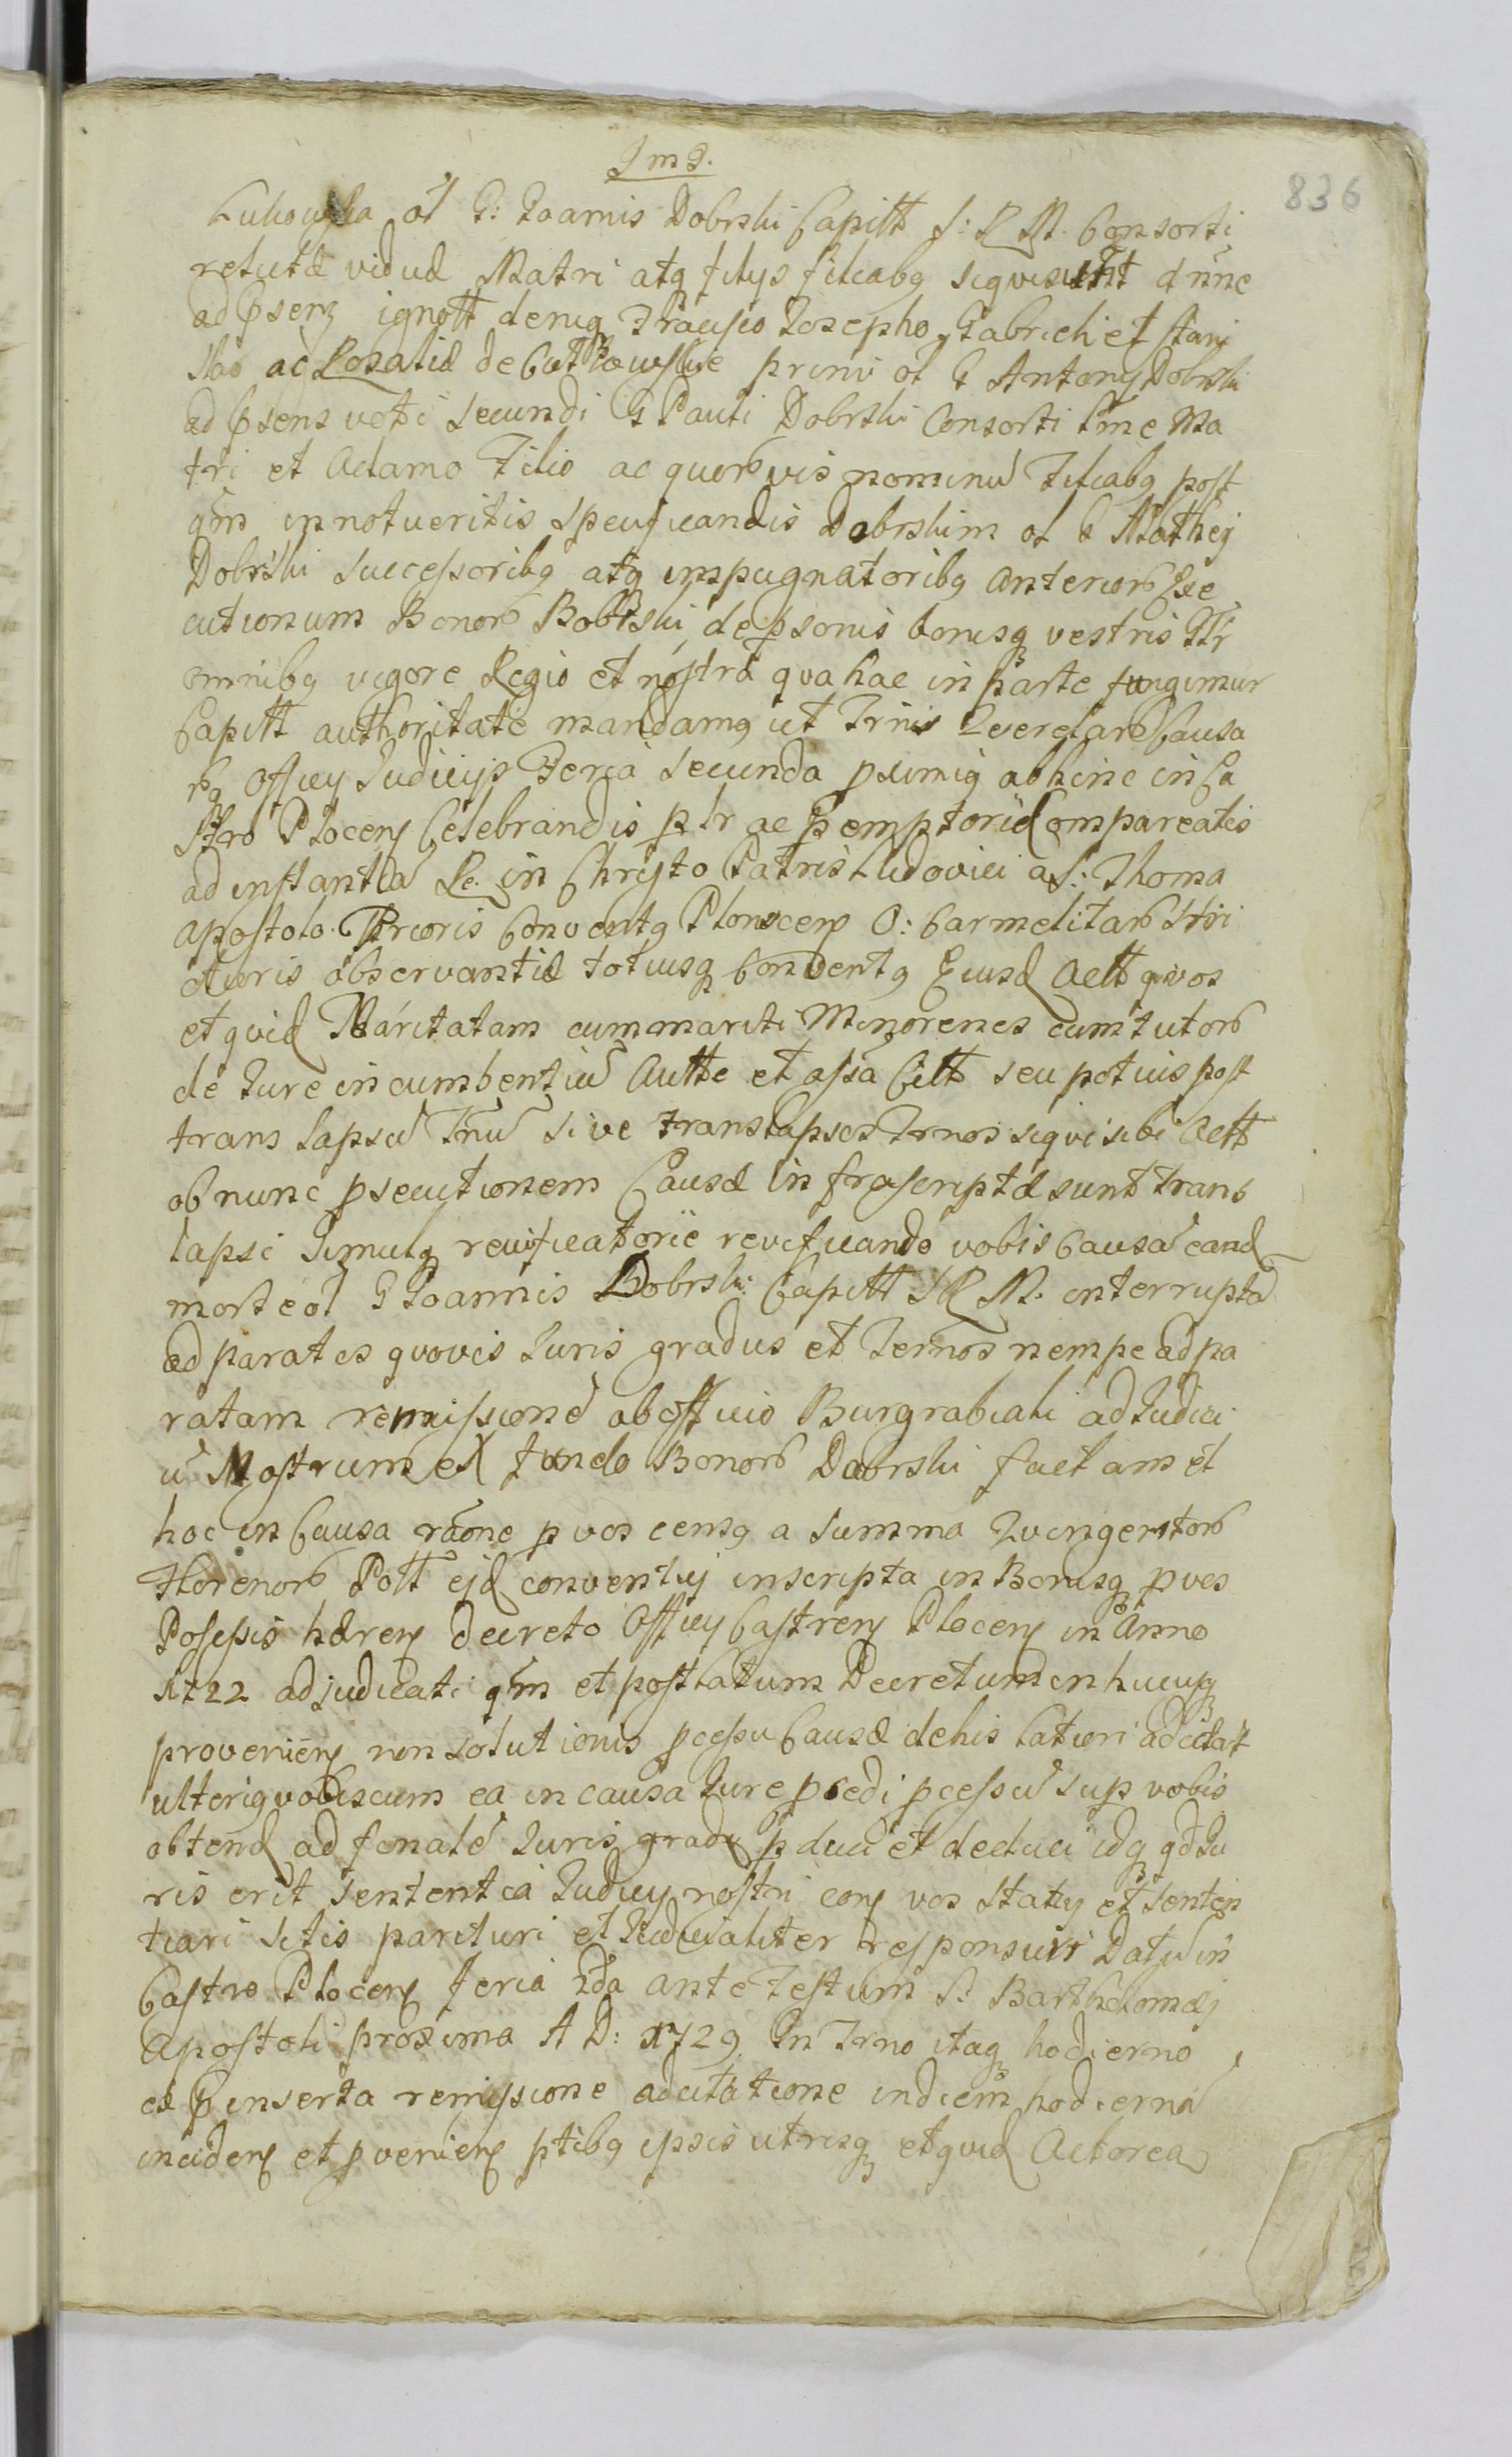 Ims.
836
Lukowska ol G: Joannis Dobrski Capitt S: R M. Consorti
relictæ viduæ Matri atq filys filiabq siqvisunt d nunc
ad psens ignott deniq Francisco Josepho, Gabrieli et Stani
slao ac Rosaliæ de primi ol G Antony Dobrski
ad psens voti secundi G Pauli Dobrski Consorti Ma
tri et Adamo Filio ac quorvis nominū Filiabq post
qm innotueritis specificandis Dobrskim ol G Mathej
Dobrski Successoribq atq impugnatoribq anterior Exe
cutionum Bonor Dobrski de psonis bonisq vestris Gtr
omnibq vigore Regio et nostra qva hac in parte fungimur
Capitt authoritate mandamq ut Trnis Qverelar Causa
rq Officy Judicijs Feria Secunda pximiq abhinc in Ca
stro Plocens Celebrandis pltr ac pemptorie Compareatis
ad instantia R. in Christo Patris Ludovici a S: Thoma
Apostolo Prioris Conventq Plonscens O: Carmelitar Stri
ctioris observantiæ totiusq Conventq Eiusd Actt qvos
et qvid Maritatam cum mariti Minorenes cum tutor
de Jure incumbentiū Autte et assa Citt seu potius post
trans lapsū Trnū sive translapsos Trnos siqvi sibi Actt
ob nunc psecutionem Causæ infrascriptæ sunt trans
lapsi Simulq reivificatorie revificando vobis Causā eand
morte ol G Joannis Dobrski Capitt S R M. interrupta
ad paratos qvovis Juris gradus et Termos nempe ad pa
ratam remissionē ab officio Burgrabiali ad Judici
ū Nostrum ex fundo Bonor Dobrski factam et
hoc in Causa rāone p vos censq a Summa Qvingentor
Florenor Poll ejd conventuj inscripta in Bonisq p vos
Possessis hærens decreto Officy Castrens Plocens in Anno
1722 adjudicati qm et post latum Decretum in hucusq
proveniens non solutionis pcessu Causæ de his latiori adcitat
ulteriq vobiscum ea in causa Jure pcedi pcessū sup vobis
obtend ad finalē Juris gradu pduci et deduci idq qd Ju
ris erit sententia Judicy nostri cors vos statuy et senten
tiari Sitis parituri et Judicialiter responsuri Datū in
Castro Plocens feria 2da ante Festum S. Bartholomæj
Apostoli proxima A D: 1729 In Trno itaq hodierno
ex p inserta remissione adcitatione indiem hodiernā
inciden et pveniens ptibq ipsis utrisq et qvid Actorea